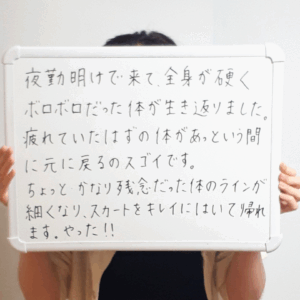 夜勤明けで来て、全身が硬く
ボロボロだった体が生き返りました。
疲れていたはずの体があっという間
に元に戻るのスゴイです。
ちょっとかなり残念だった体のラインが
細くなり、スカートをキレイにはいて帰れ
ます。やった!!